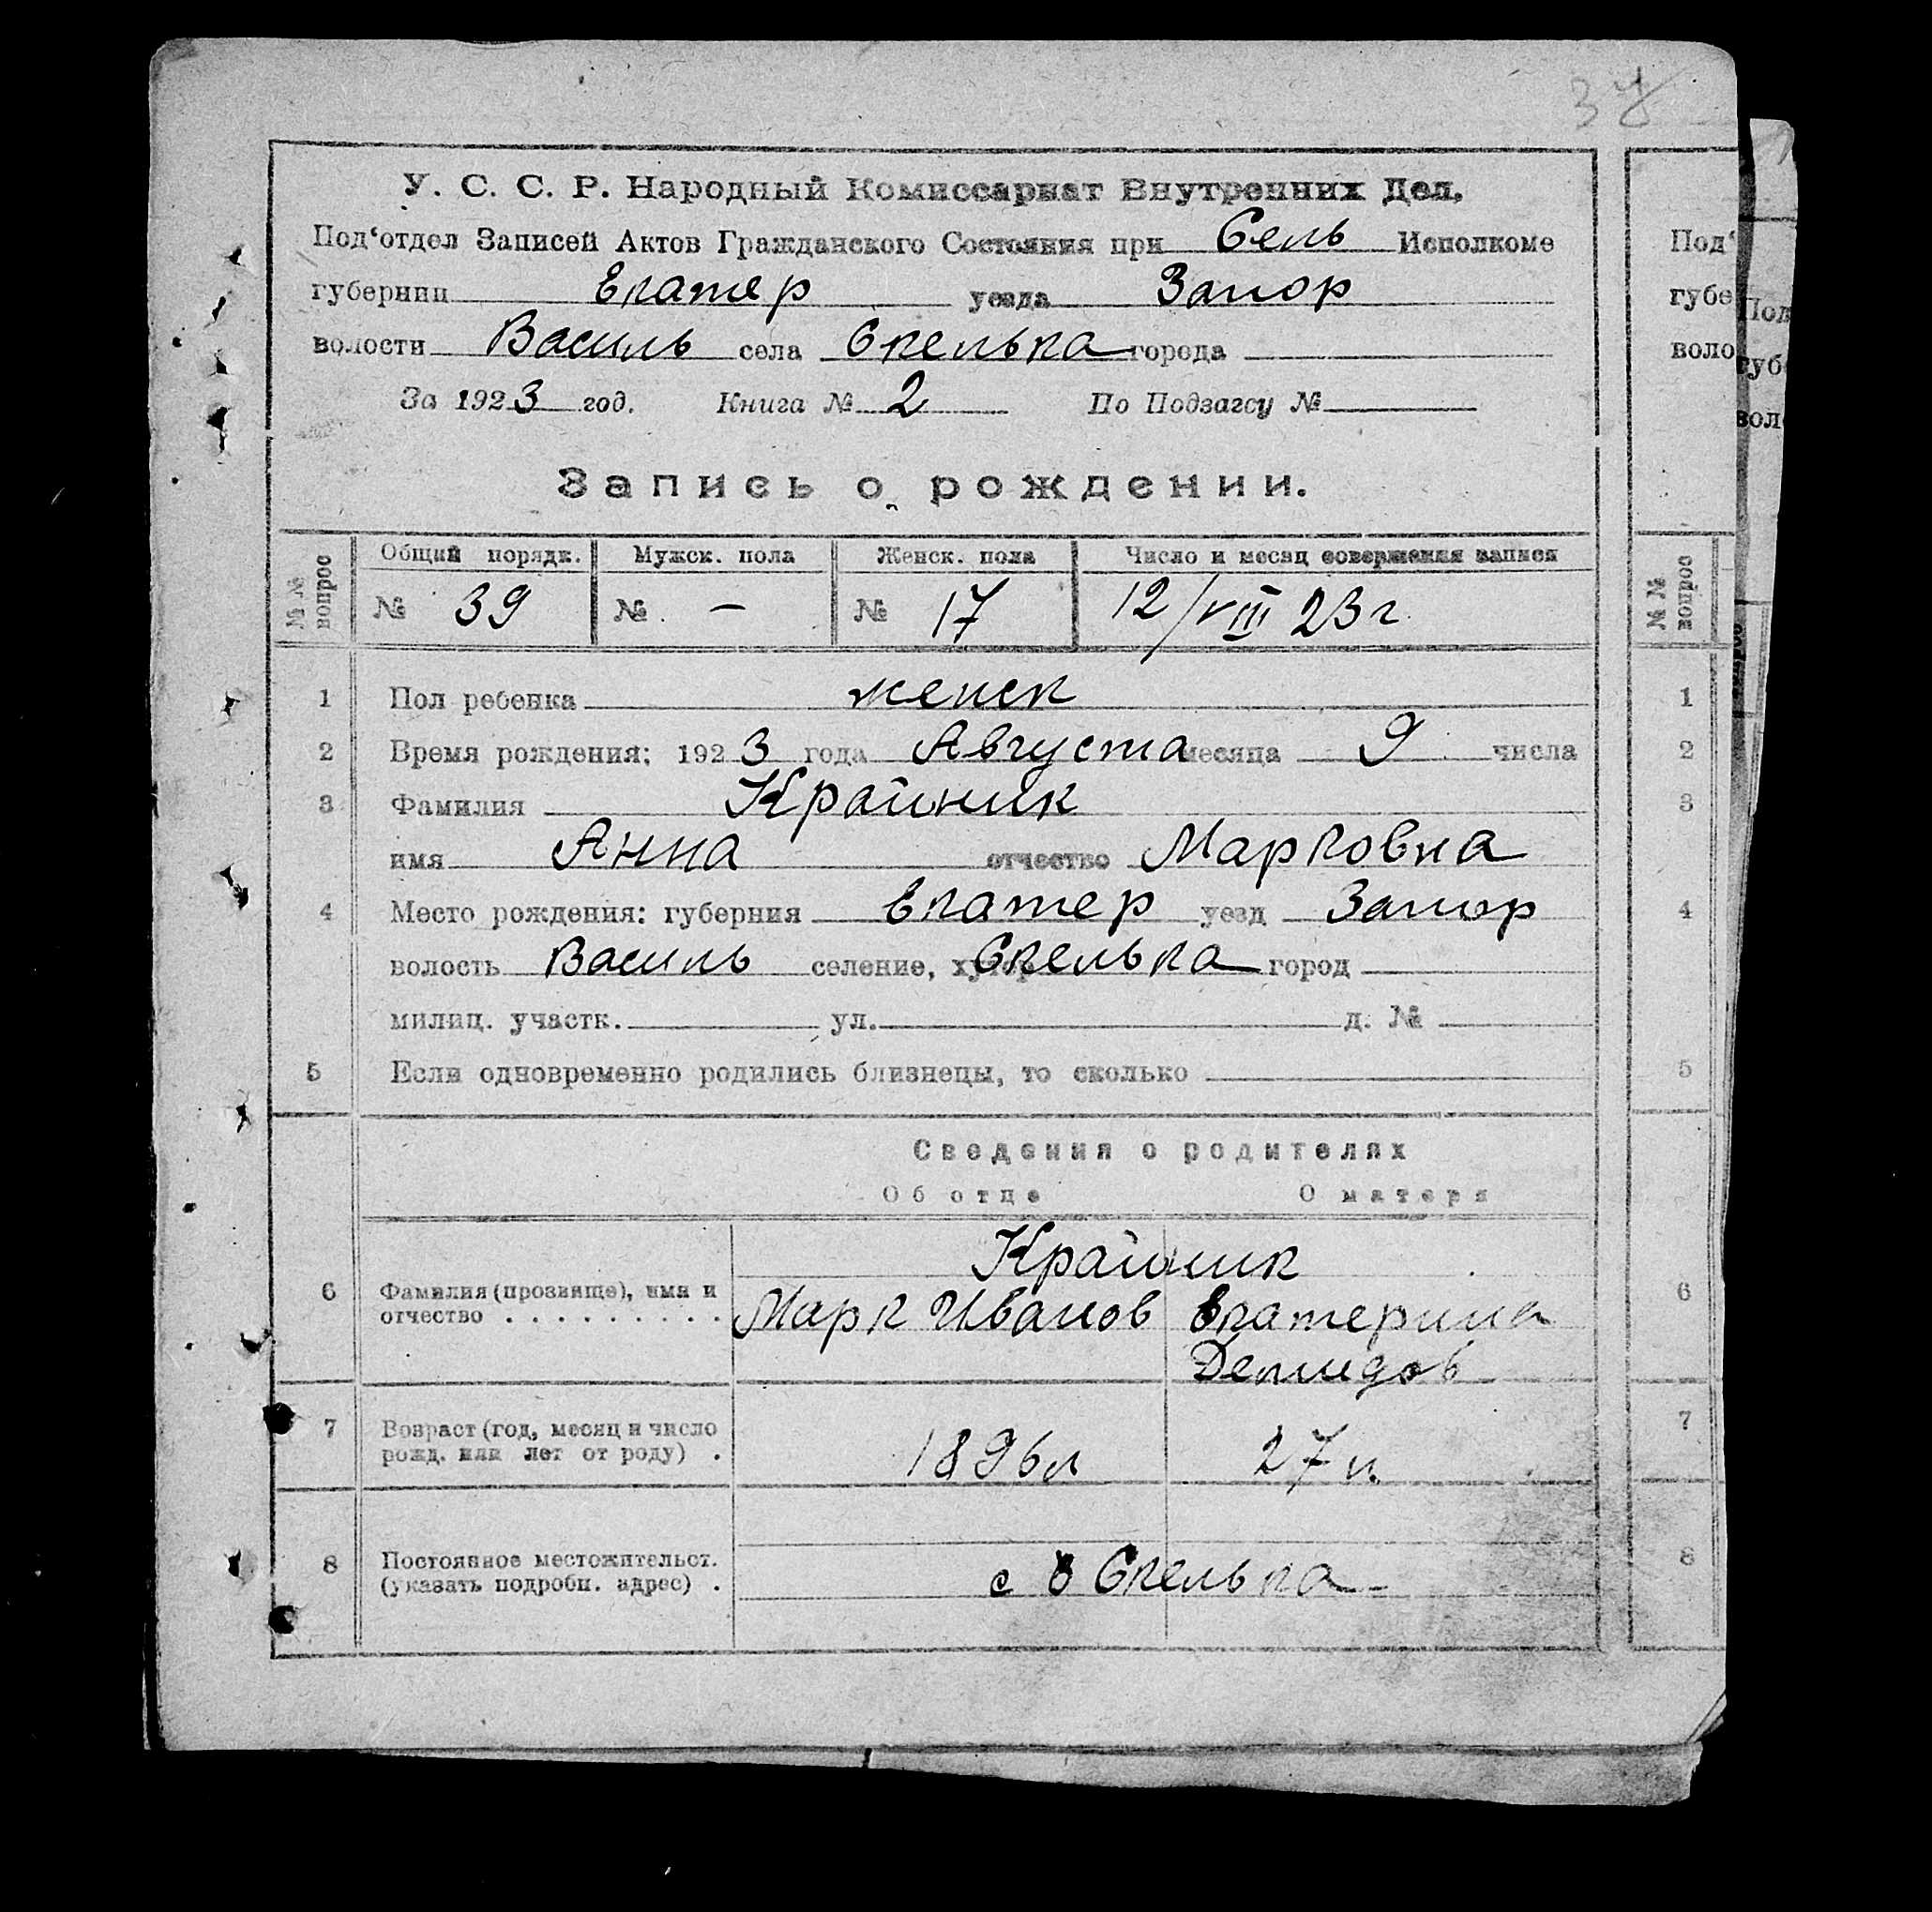 37
У. С. С. Р. Народный Комиссариат Внутренних Дел.
Под‘отдел Записей Актов Гражданского Состояния при Сель Исполкоме
губернии Екатер уезда Запор
волости Василь села Скелька города
За 1923 год. Книга № 2 По Подзагсу №
Запись о рождении.
№ № вопрос
Общий порядк. Мужск. пола Женск. пола Число и месяц совершения записи
№ 39 № – № 17 12/VIII 23 г
1 Пол ребенка женск
2 Время рождения: 1923 года Августа месяца 9 числа
3 Фамилия Крайник
имя Анна отчество Марковна
4 Место рождения: губерния Екатер уезд Запор
волость Василь селение, хутор Скелька город
милиц. участк. ул. д. №
5 Если одновременно родились близнецы, то сколько
Сведения о родителях
Об отце О матери
Крайник
6 Фамилия (прозвище), имя и
отчество . . . . . . . . . Марк Иванов Екатерина
Демидов
7 Возраст (год, месяц и число
рожд. или лет от роду) . 1896 л 27 л.
8 Постоянное местожительст.
(указать подробн. адрес) . с Скелька
Под‘
губе
воло
№ № вопрос
1
2
3
4
5
6
7
8
Под
губе
воло